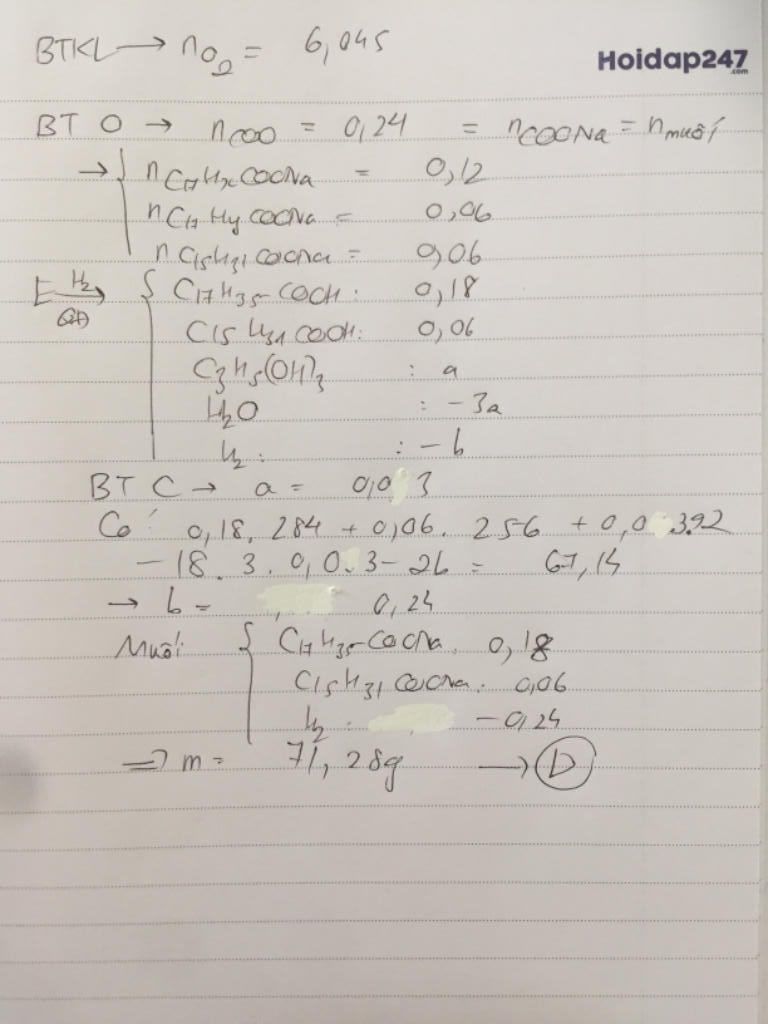 BTKL → nO2 = 6,045
Hoidap247
.com
BT O → nCOO = 0,24 = nCOONa = nmuối
→ { nC17HxCOONa = 0,12
nC17HyCOONa = 0,06
nC15H31COONa = 0,06
E H2 → { C17H35-COOH: 0,18
C15H31COOH: 0,06
C3H5(OH)3 : a
H2O : -3a
H2 : : -b
BT C → a = 0,0 3
Có 0,18. 284 + 0,06. 256 + 0,0 3.92
- 18. 3. 0,0.3 - 2b = 67,14
→ b = 0,24
Muối { C17H35-COONa. 0,18
C15H31COONa: 0,06
H2 : -0,24
=> m = 71,28g → D